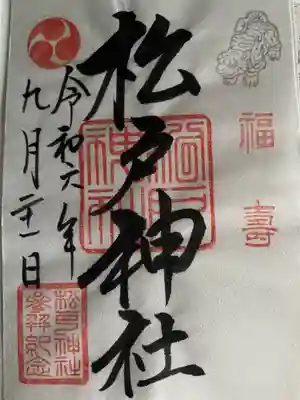 福壽
松戸神社
松戸神社
令和六年
九月二十一日
松戸神社
参拝紀念